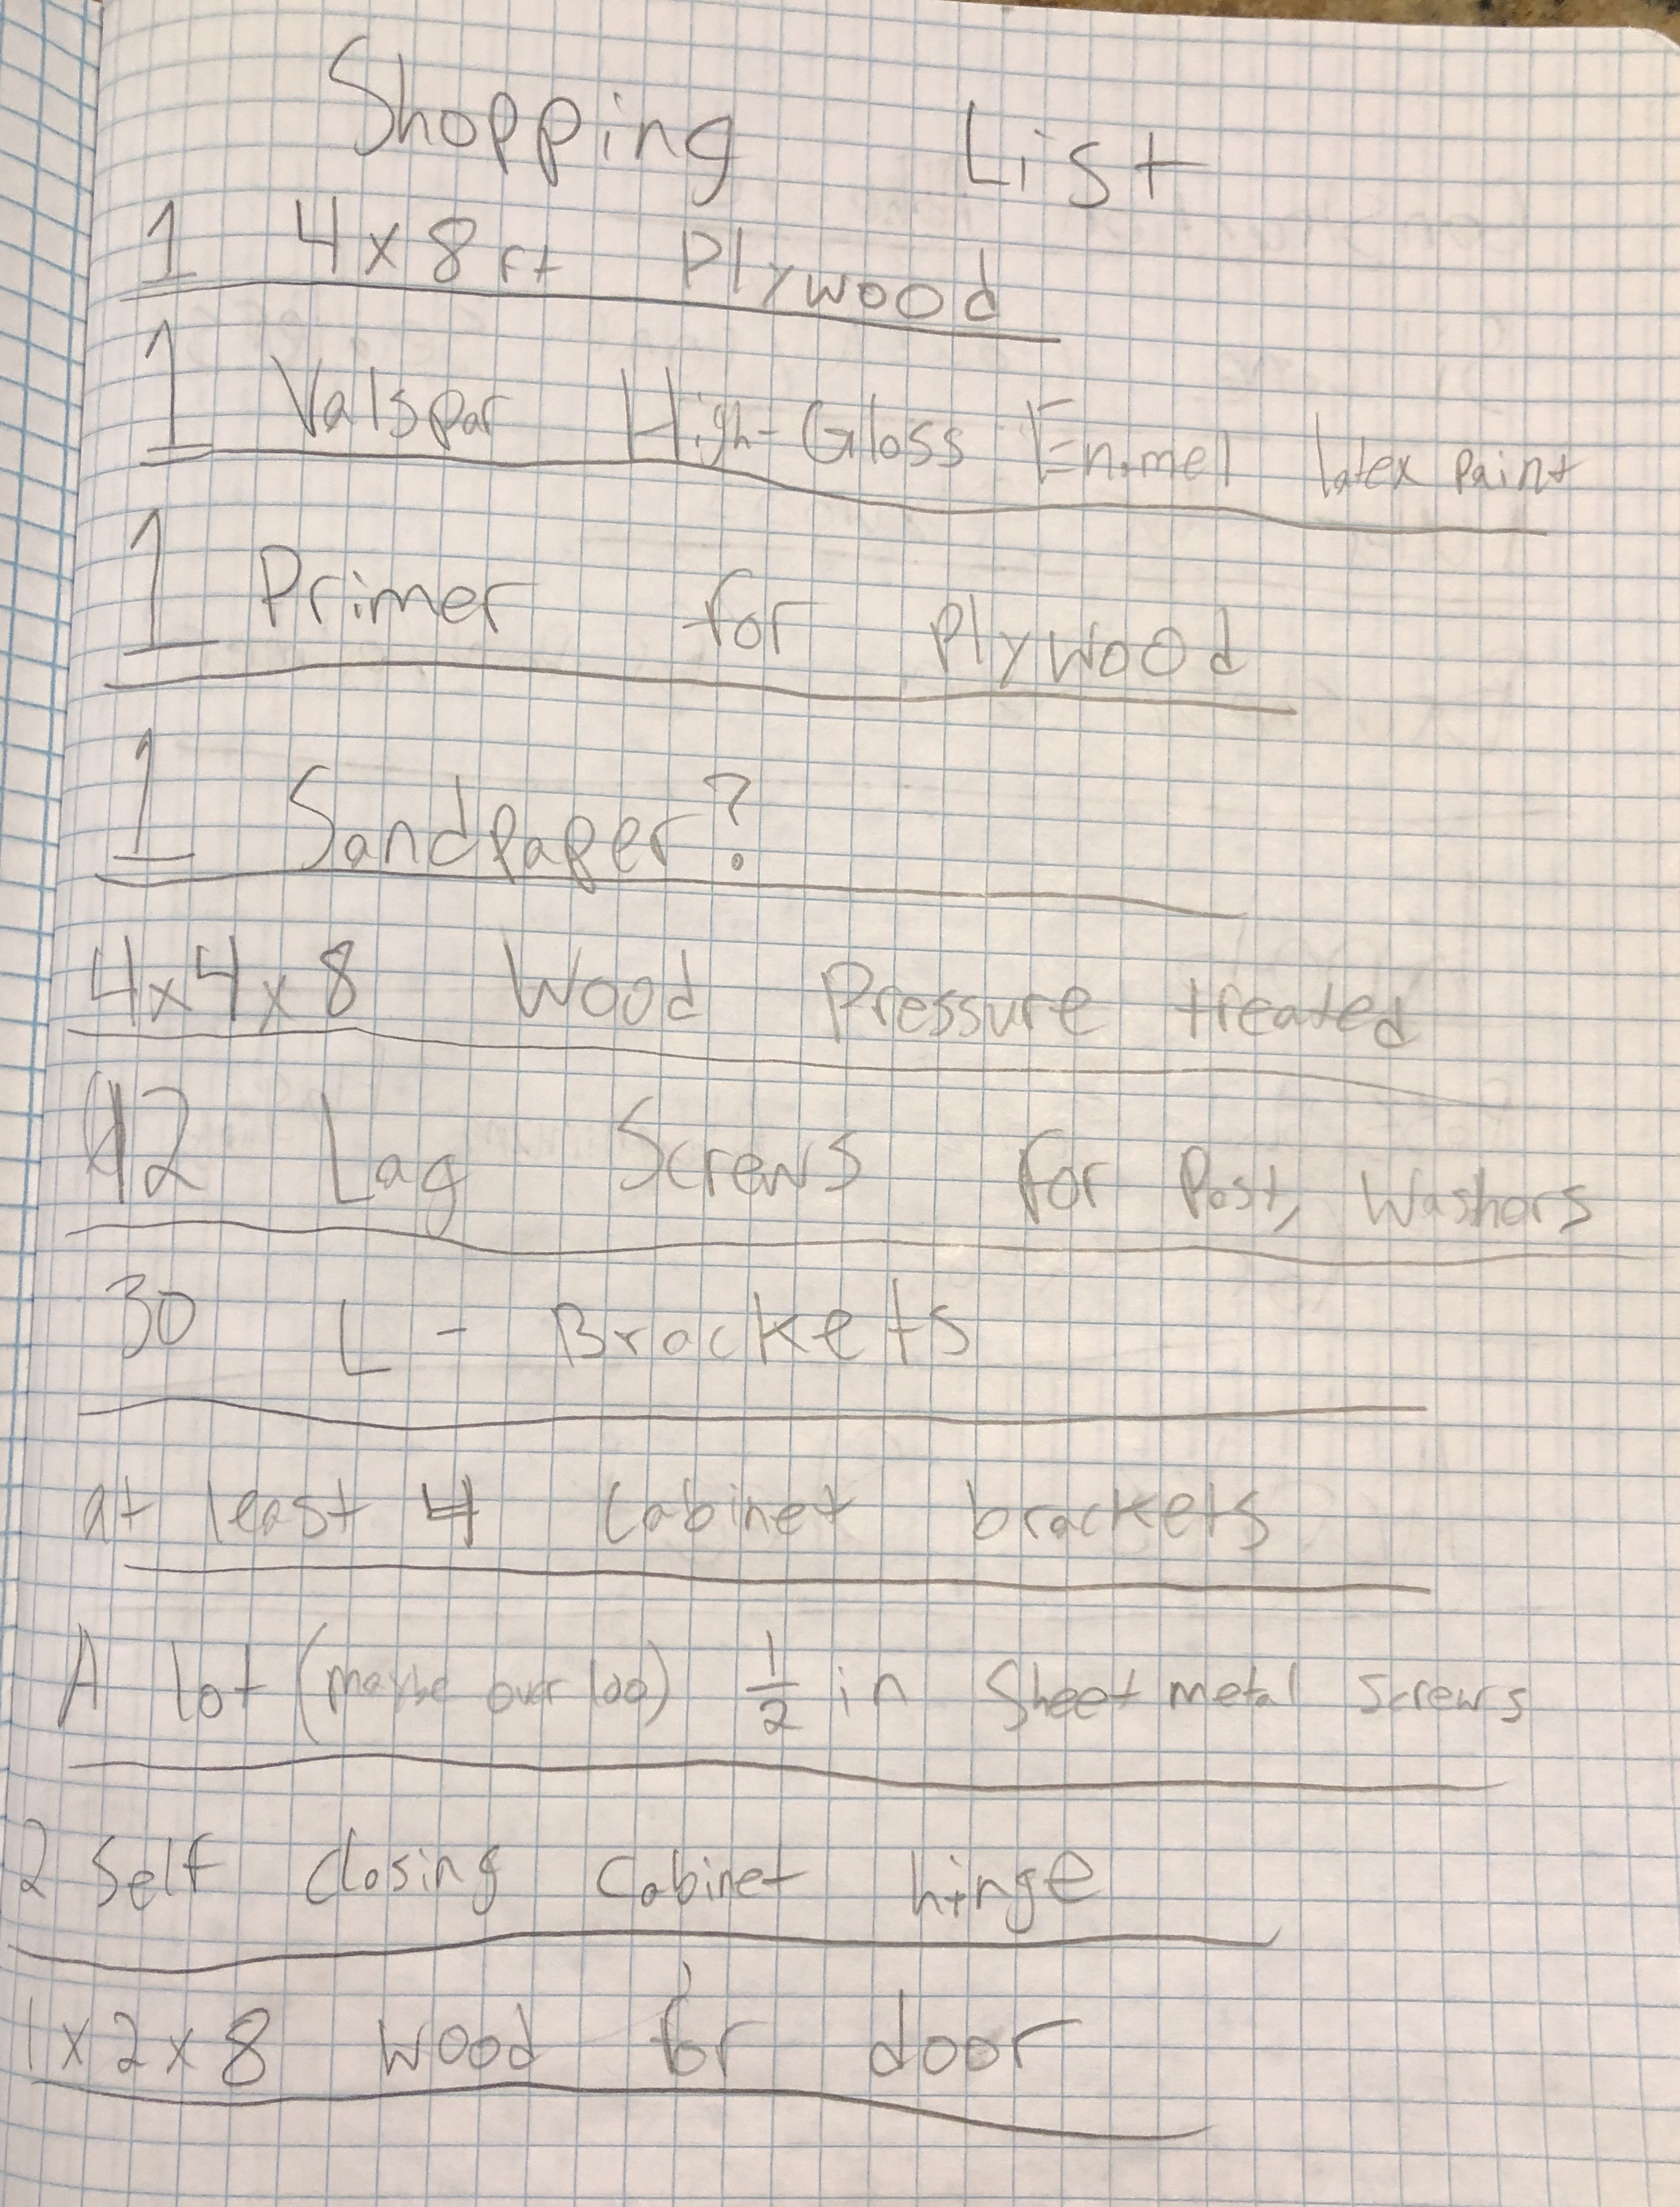 Shopping List
1 4x8 ft Plywood
1 Valspar High-Gloss Enimel latex paint
1 Primer for plywood
1 Sandpaper?
4x4x8 Wood Pressure treated
12 Lag Screws for Post, Washors
30 L-Brackets
at least 4 Cabinet brackets
A lot (maybe over 100) 1/2 in Sheet metal screws
2 Self closing Cabinet hinge
1x2x8 wood for door